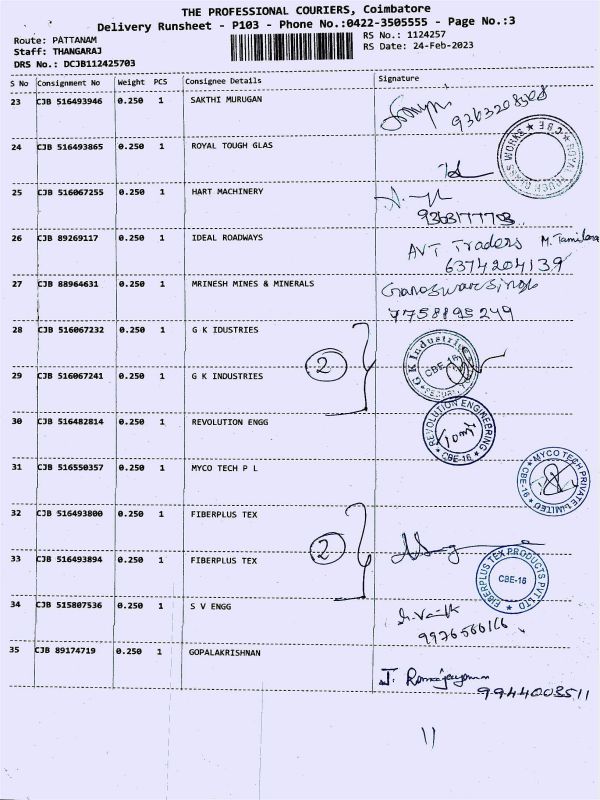 THE PROFESSIONAL COURIERS, Coimbatore
Delivery Runsheet - P103 - Phone No.:0422-3505555 - Page No.:3
Route: PATTANAM
Staff: THANGARAJ
DRS No.: DCJB112425703
RS No.: 1124257
RS Date: 24-Feb-2023
S No Consignment No Weight PCS Consignee Details Signature
23 CJB 516493946 0.250 1 SAKTHI MURUGAN
9363208508
24 CJB 516493865 0.250 1 ROYAL TOUGH GLAS
ROYAL TOUGH GLASS WORKS ★ CBE ★
25 CJB 516067255 0.250 1 HART MACHINERY
26 CJB 89269117 0.250 1 IDEAL ROADWAYS
AVT Traders
6374204139
27 CJB 88964631 0.250 1 MRINESH MINES & MINERALS
28 CJB 516067232 0.250 1 G K IDUSTRIES
2
G K Industries
CBE-16
SECURITY
29 CJB 516067241 0.250 1 G K INDUSTRIES
30 CJB 516482814 0.250 1 REVOLUTION ENGG
REVOLUTION ENGINEERING
★ CBE-16 ★
31 CJB 516550357 0.250 1 MYCO TECH P L
★ MYCO TECH PRIVATE LIMITED ★ CBE-16
32 CJB 516493800 0.250 1 FIBERPLUS TEX
2
33 CJB 516493894 0.250 1 FIBERPLUS TEX
FIBERPLUS TEX PRODUCTS PVT LTD ★
CBE-16
34 CJB 515807536 0.250 1 S V ENGG
9976566166
35 CJB 89174719 0.250 1 GOPALAKRISHNAN
9944003511
11